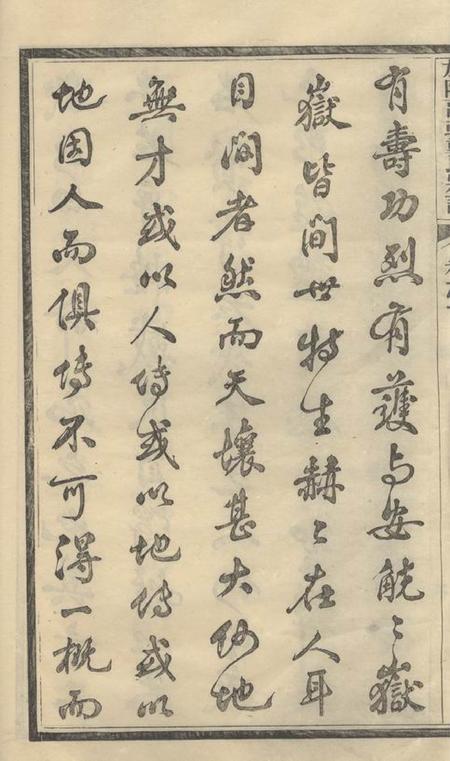 有壽功烈有蘐与安觥〻嶽
嶽皆间世特生赫〻在人耳
目间者然而天壤甚大何地
無才或以人傳或以地傳或以
地因人而俱傳不可得一概而